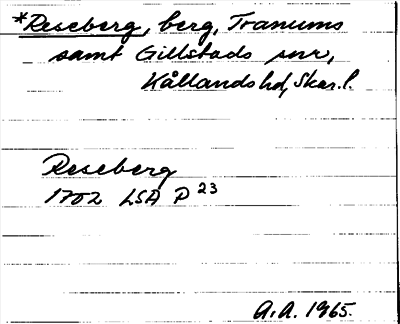 *Reseberg, berg, Tranums
samt Gillstads snr,
Kållands hd, Skar.l.
Reseberg
1702 LSA P 23
A.A. 1965.